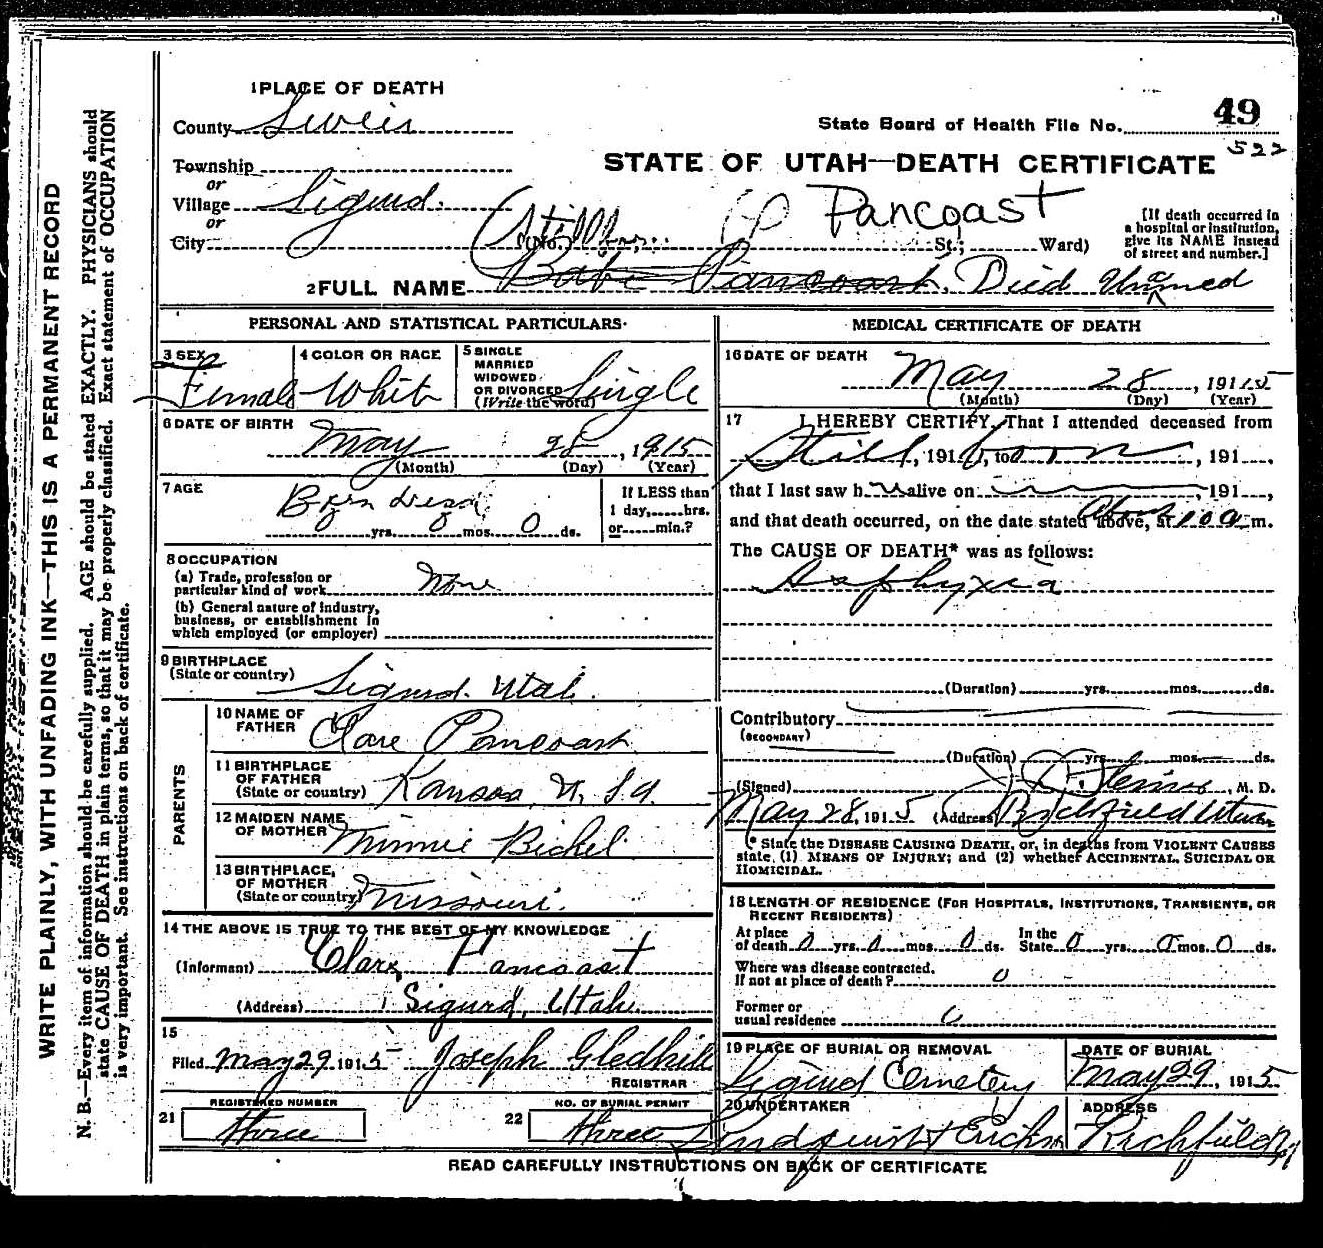 1 PLACE OF DEATH
County Sevier
49
State Board of Health File No.
522
Township
or
STATE OF UTAH—DEATH CERTIFICATE
Village Sigurd.
or
City
(No. St.; Ward)
Pancoast
[If death occurred in
a hospital or institution,
give its NAME instead
of street and number.]
2 FULL NAME Babe Pancoast. Died Unamed
PERSONAL AND STATISTICAL PARTICULARS
3 SEX
Female
4 COLOR OR RACE
White
5 SINGLE
MARRIED
WIDOWED
OR DIVORCED
(Write the word)
Single
6 DATE OF BIRTH
May 28, 1915
(Month) (Day) (Year)
7 AGE
Born dead
yrs. 0 mos. 0 ds.
If LESS than
1 day,.....hrs.
or.....min.?
8 OCCUPATION
(a) Trade, profession or
particular kind of work None
(b) General nature of industry,
business, or establishment in
which employed (or employer)
9 BIRTHPLACE
(State or country)
Sigurd. Utah.
PARENTS
10 NAME OF
FATHER
Clare Pancoast
11 BIRTHPLACE
OF FATHER
(State or country)
Kansas U. S. A.
12 MAIDEN NAME
OF MOTHER
Minnie Bickel
13 BIRTHPLACE
OF MOTHER
(State or country)
Missouri.
14 THE ABOVE IS TRUE TO THE BEST OF MY KNOWLEDGE
(Informant) Clare Pancoast
(Address) Sigurd, Utah.
15
Filed May 29 1915 Joseph Gledhill
REGISTRAR
REGISTERED NUMBER
21 three
NO. OF BURIAL PERMIT
22 three
MEDICAL CERTIFICATE OF DEATH
16 DATE OF DEATH
May 28, 1915
(Month) (Day) (Year)
17 I HEREBY CERTIFY, That I attended deceased from
Still, 191 born, to, 191....,
that I last saw h alive on, 191....,
and that death occurred, on the date stated above, at About 10 a m.
The CAUSE OF DEATH* was as follows:
Asphyxia
(Duration) yrs. mos. ds.
Contributory
(SECONDARY)
(Duration) yrs. mos. ds.
(Signed) M. D.
May 28, 1915 (Address) Richfield Utah
* State the DISEASE CAUSING DEATH, or, in deaths from VIOLENT CAUSES
state, (1) MEANS OF INJURY; and (2) whether ACCIDENTAL, SUICIDAL OR
HOMICIDAL.
18 LENGTH OF RESIDENCE (FOR HOSPITALS, INSTITUTIONS, TRANSIENTS, OR
RECENT RESIDENTS)
At place
of death 0 yrs. 0 mos. 0 ds.
In the
State 0 yrs. 0 mos. 0 ds.
Where was disease contracted,
If not at place of death? 0
Former or
usual residence
19 PLACE OF BURIAL OR REMOVAL
Sigurd Cemetery
DATE OF BURIAL
May 29, 1915
20 UNDERTAKER
ADDRESS
Richfield
READ CAREFULLY INSTRUCTIONS ON BACK OF CERTIFICATE
WRITE PLAINLY, WITH UNFADING INK—THIS IS A PERMANENT RECORD
N. B.—Every item of information should be carefully supplied. AGE should be stated EXACTLY. PHYSICIANS should
state CAUSE OF DEATH in plain terms, so that it may be properly classified. Exact statement of OCCUPATION
is very important. See instructions on back of certificate.